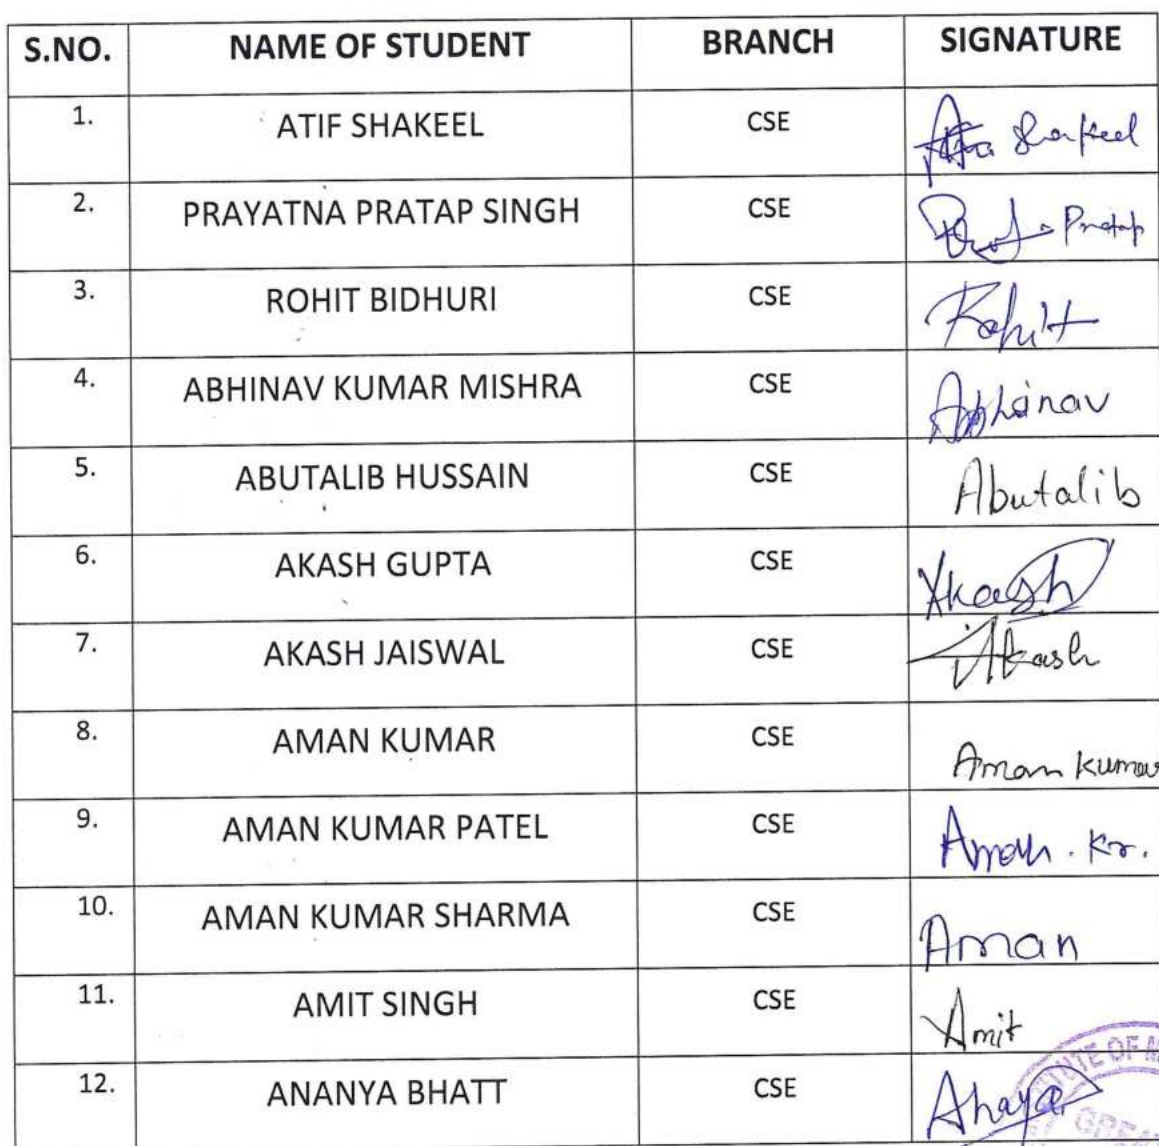 S.NO. NAME OF STUDENT BRANCH SIGNATURE
1. ATIF SHAKEEL CSE Shakeel
2. PRAYATNA PRATAP SINGH CSE Pratap
3. ROHIT BIDHURI CSE Rohit
4. ABHINAV KUMAR MISHRA CSE Abhinav
5. ABUTALIB HUSSAIN CSE Abutalib
6. AKASH GUPTA CSE Akash
7. AKASH JAISWAL CSE Akash
8. AMAN KUMAR CSE Aman Kumar
9. AMAN KUMAR PATEL CSE Aman. Kr.
10. AMAN KUMAR SHARMA CSE Aman
11. AMIT SINGH CSE Amit
12. ANANYA BHATT CSE
OF